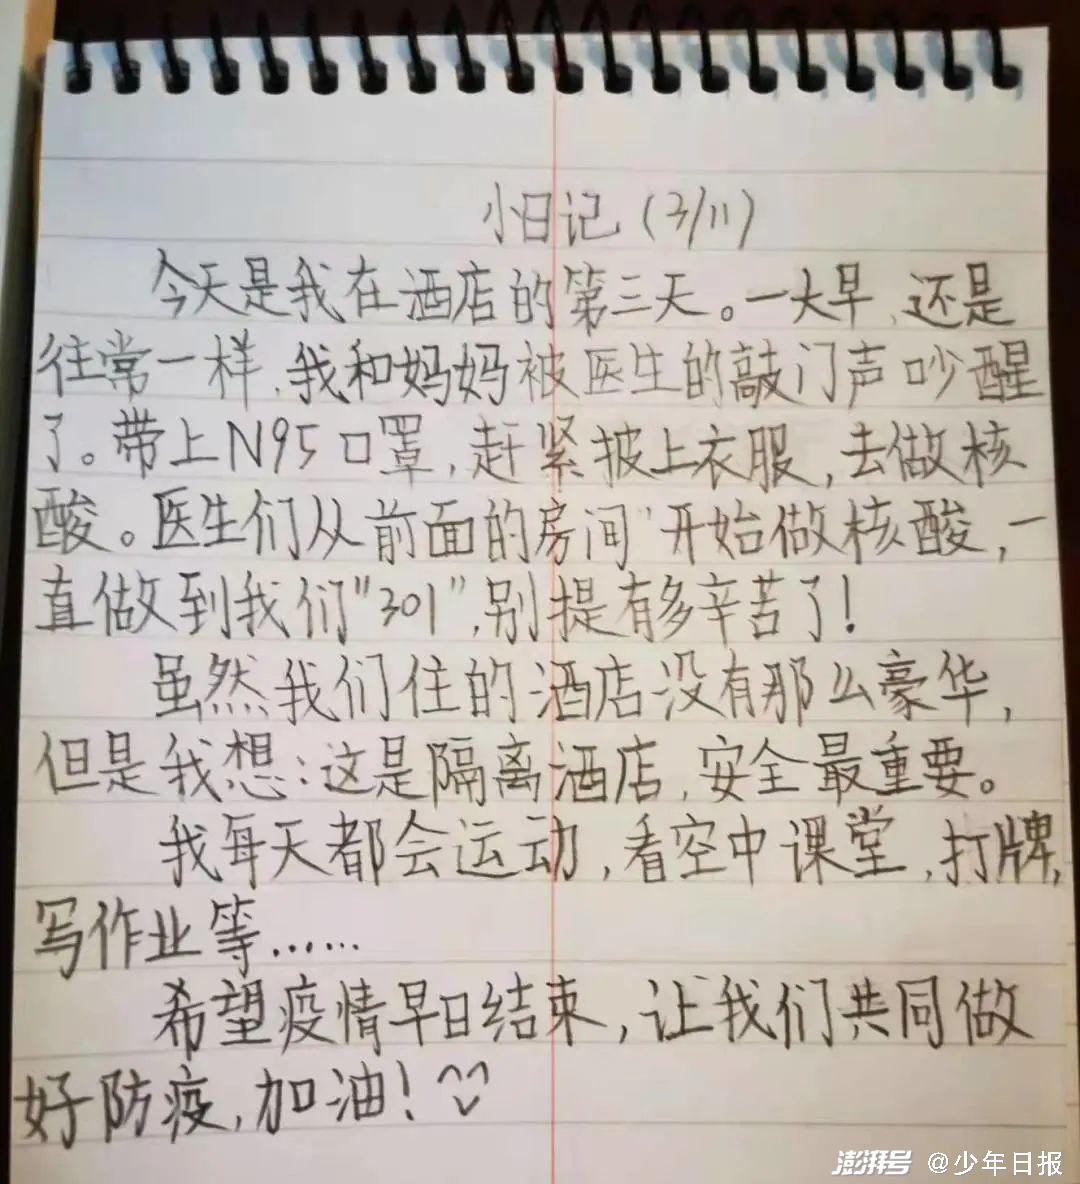 小日记(3/11)
今天是我在酒店的第三天。一大早,还是
往常一样,我和妈妈被医生的敲门声吵醒
了。带上N95口罩,赶紧披上衣服,去做核
酸。医生们从前面的房间"开始做核酸,一
直做到我们"301",别提有多辛苦了!
虽然我们住的酒店没有那么豪华,
但是我想:这是隔离酒店,安全最重要。
我每天都会运动,看空中课堂,打牌,
写作业等……
希望疫情早日结束,让我们共同做
好防疫,加油!
澎湃号 @少年日报